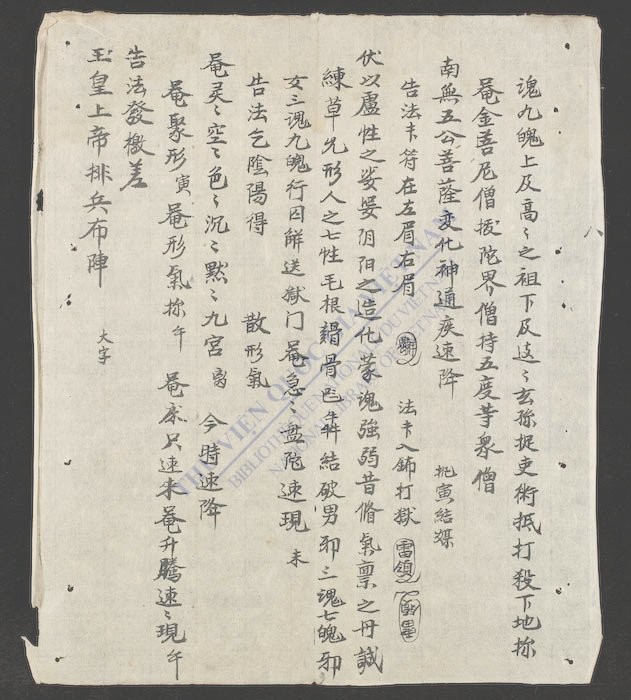 魂九魄上及高〻之祖下及远〻玄孫捉吏術抵打殺下地孫
菴金菩尼僧援陀界僧持五度等衆僧
南無五公菩薩变化神通疾速降 执寅結
告法卞符在左眉右眉 法卞入鈽打獄
伏以盧性之 阴阳之造化蒙魂強弱昔脩氣禀之丹誠
練草先形人之七性毛根 骨 結破男邪三魂七魄邪
女三魂九魄行囚觧送獄门菴急〻 陀速現 未
告法乞陰陽得 散形氣
菴灵〻空〻色〻沉〻默〻九宮 今時速降
菴聚形寅菴形氣 午 菴 只速 菴升騰速〻現 午
告法發檄差
玉皇上帝排兵布陣 大字
THƯ VIỆN QUỐC GIA VIỆT NAM
BIBLIOTHÈQUE NATIONALE DU VIETNAM
NATIONAL LIBRARY OF VIETNAM